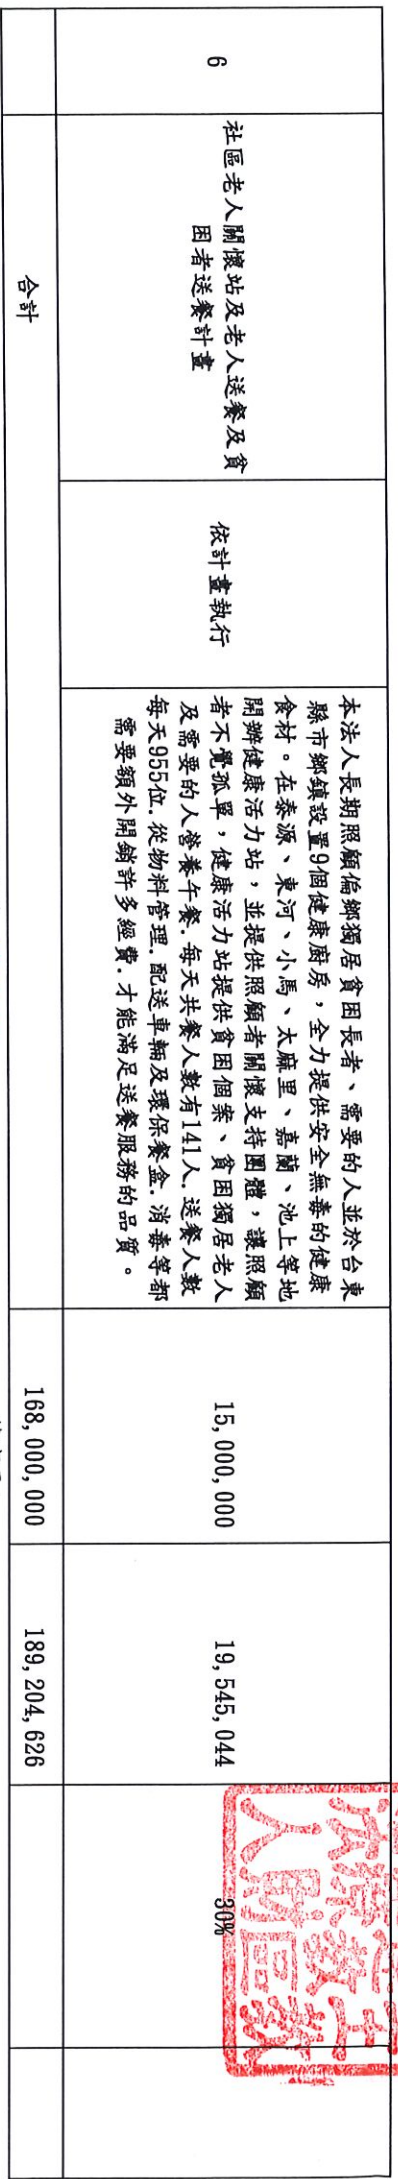 6
社區老人關懷站及老人送餐及貧
困者送餐計畫
依計畫執行
本法人長期照顧偏鄉獨居貧困長者、需要的人並於台東
縣市鄉鎮設置9個健康廚房，全力提供安全無毒的健康
食材。在泰源、東河、小馬、太麻里、嘉蘭、池上等地
開辦健康活力站，並提供照顧者關懷支持團體，讓照顧
者不覺孤單，健康活力站提供貧困個案、貧困獨居老人
及需要的人營養午餐.每天共餐人數有141人.送餐人數
每天955位.從物料管理.配送車輛及環保餐盒.消毒等都
需要額外開銷許多經費.才能滿足送餐服務的品質。
15,000,000
19,545,044
30%
合計
168,000,000
189,204,626